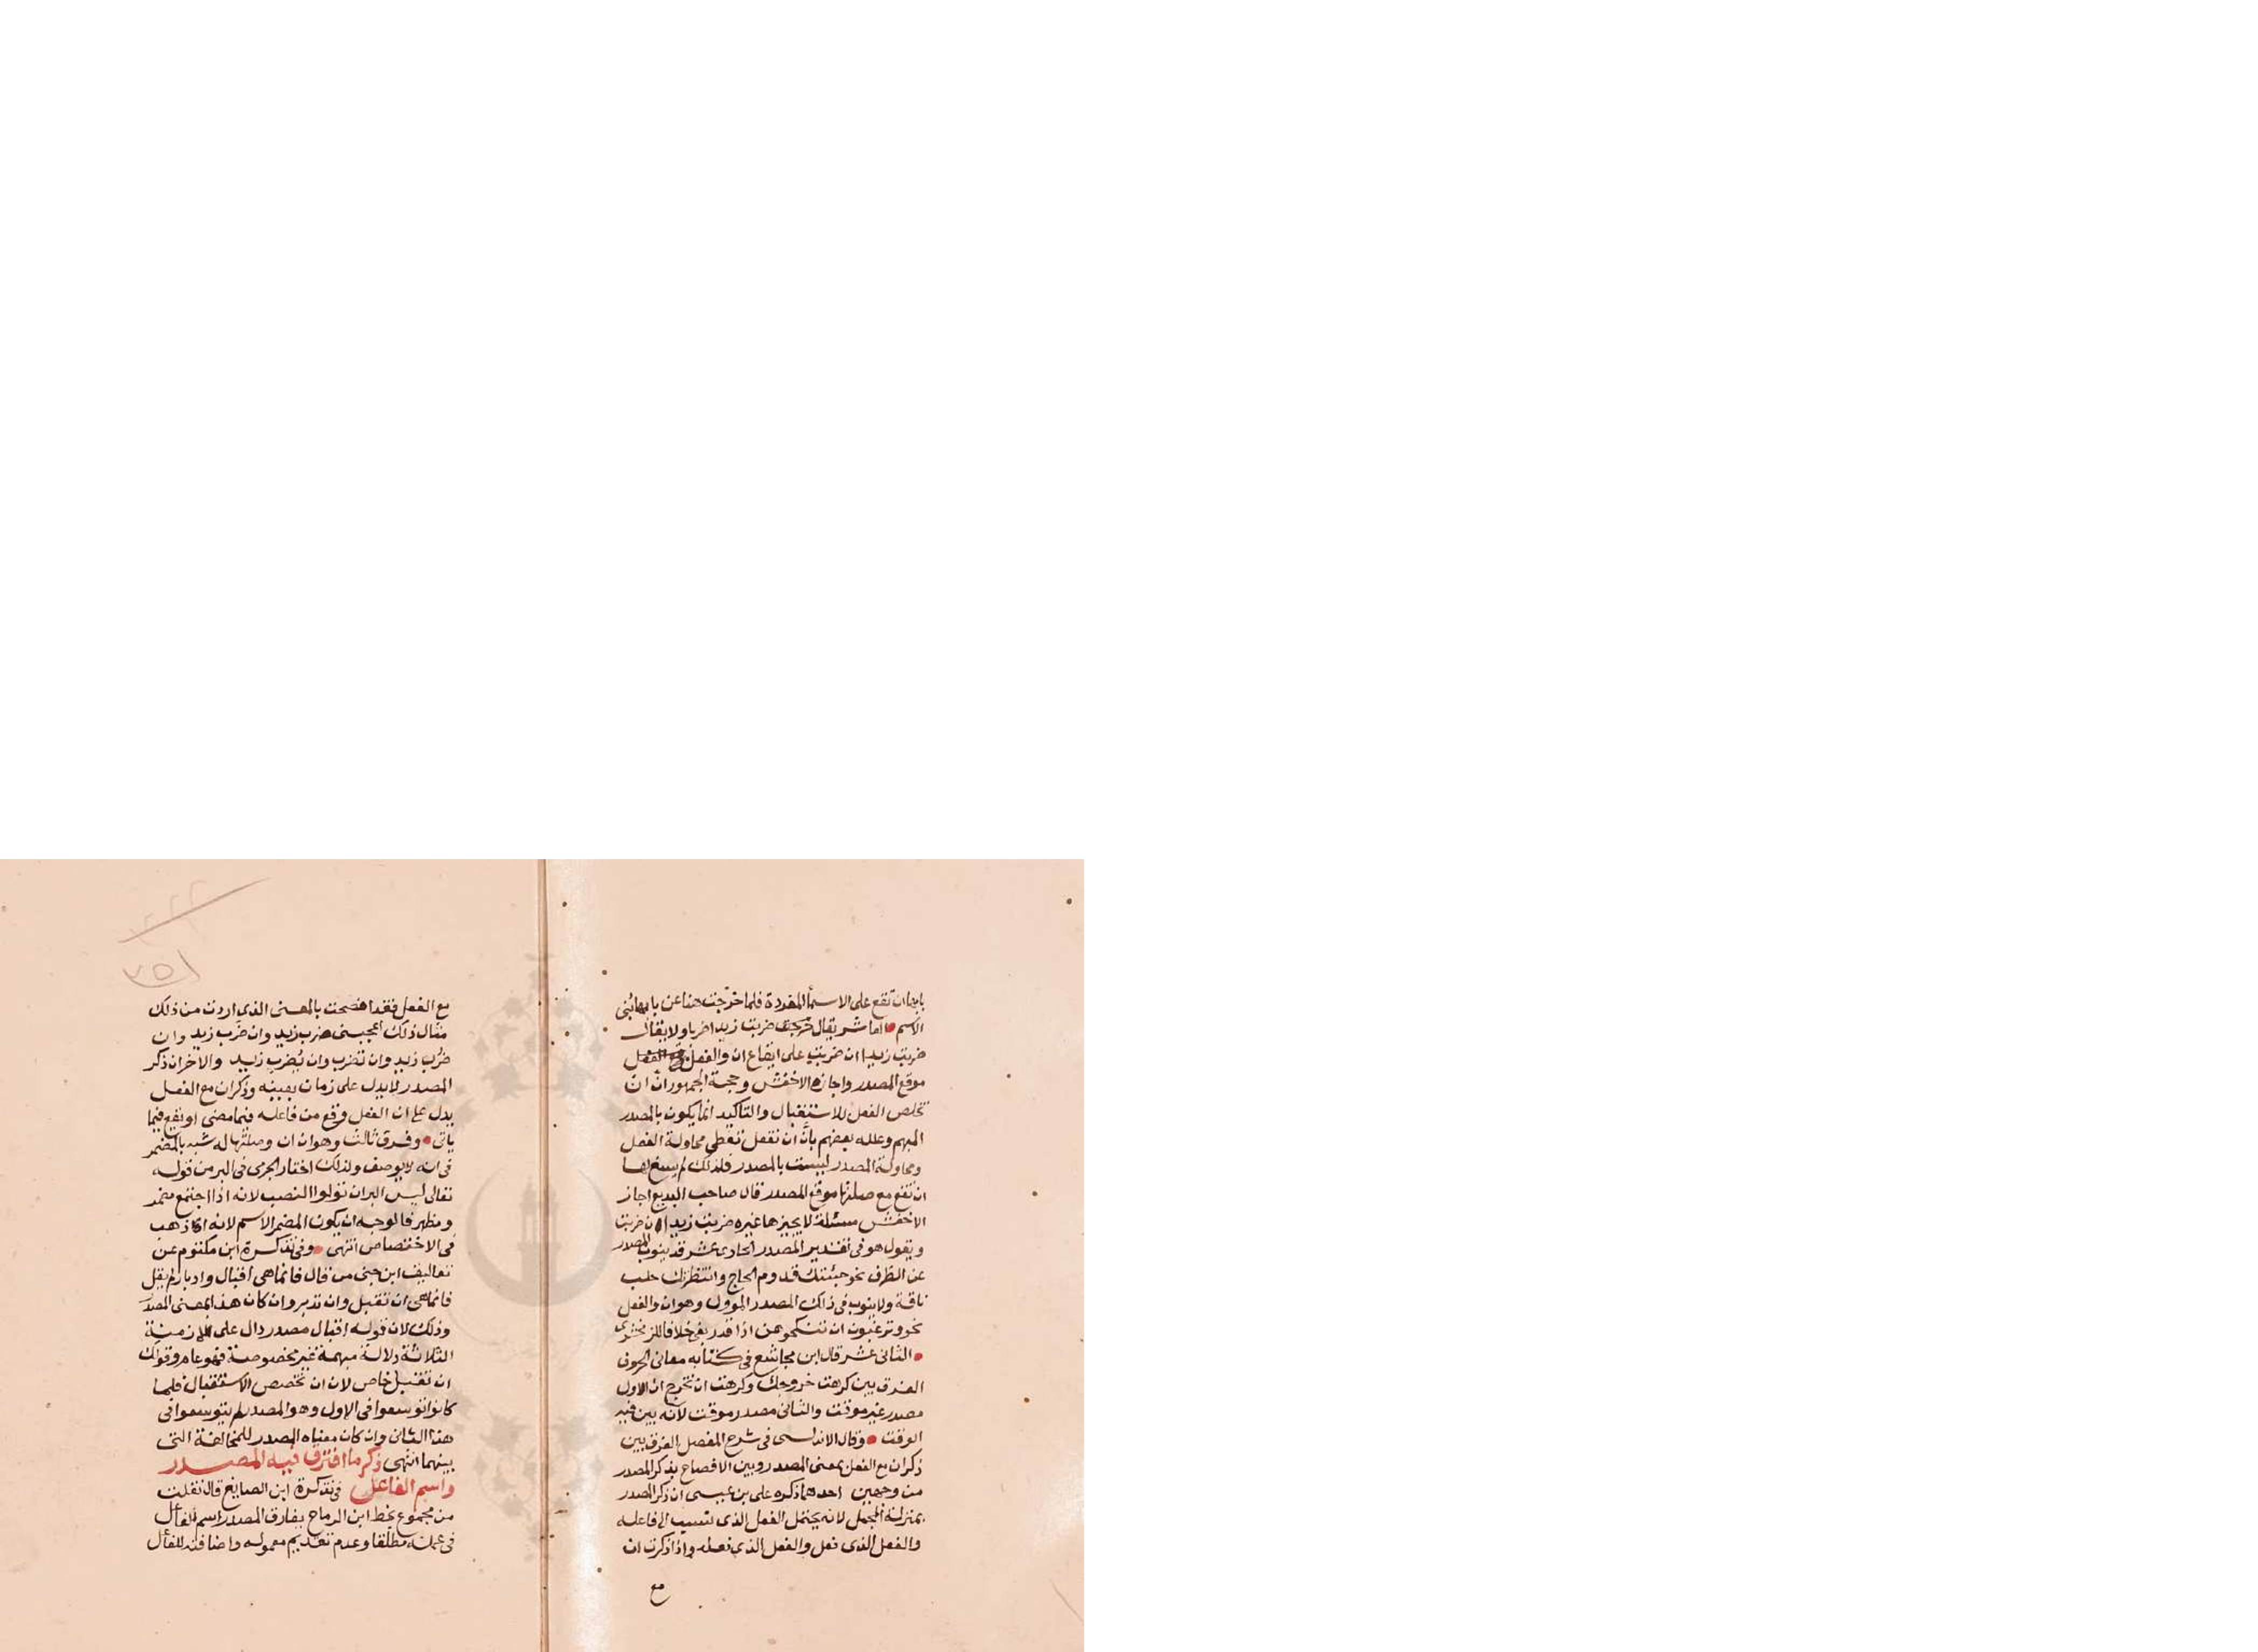 بابها ان تقع على الاسماء المفردة فلما خرجت هنا عن بابها بنى
الاسم العاشر يقال ضربت زيدا ضربا ولا يقال
ضربت زيدا ان ضربت على ايقاع ان والفعل
موقع المصدر واجازه الاخفش وحجة الجمهور ان ان
تخلص الفعل للاستقبال والتاكيد انما يكون بالمصدر
المبهم وعلله بعضهم بان ان تفعل تعطى محاولة الفعل
ومحاولة المصدر ليست بالمصدر فلذلك لم يسغ لها
ان تقع مع صلتها موقع المصدر قال صاحب البديع اجاز
الاخفش مسئلة لا يجيزها غيره ضربت زيدا ان ضربت
ويقول هو فى تقدير المصدر الحادى عشر قد ينوب المصدر
عن الظرف نحو جئتك قدوم الحاج وانتظرتك حلب
ناقة ولا ينوب فى ذلك المصدر المؤول وهو ان والفعل
نحو وترغبون ان تنكحوهن اذا قدر بفى خلافا للزمخشرى
الثانى عشر قال ابن مجاشع فى كتابه معانى الحروف
الفرق بين كرهت خروجك وكرهت ان تخرج ان الاول
مصدر غير موقت والثانى مصدر موقت لانه بين فيه
الوقت وقال الاندلسى فى شرح المفصل الفرق بين
ذكر ان مع الفعل بمعنى المصدر وبين الافصاح بذكر المصدر
من وجهين احدهما ذكره على بن عيسى ان ذكر المصدر
بمنزلة المجمل لانه يحتمل الفعل الذى نسب الى فاعله
والفعل الذى فعل والفعل الذى نعله واذا ذكرت ان
مع
٣٥١
مع الفعل فقد افصحت بالمعنى الذى اردت من ذلك
مثال ذلك اعجبنى ضرب زيد وان ضرب زيد وان
ضُرب زيد وان تضرب وان يُضرب زيد والاخر ان ذكر
المصدر لا يدل على زمان بعينه وذكر ان مع الفعل
يدل على ان الفعل وقع من فاعله فيما مضى او يقع فيما
ياتى وفرق ثالث وهو ان ان وصلتها له شبه بالمضمر
فى انه لا يوصف ولذلك اختار الجرمى فى البر من قوله
تعالى ليس البر ان تولوا النصب لانه اذا اجتمع مضمر
ومظهر فالوجه ان يكون المضمر الاسم لانه اذهب
فى الاختصاص انتهى وفى تذكرة ابن مكتوم عن
تعاليق ابن جنى من قال فانما هى اقبال وادبار لم يقل
فانما هى ان تقبل وان تدبر وان كان هذا بمعنى المصدر
وذلك لان قوله اقبال مصدر دال على الازمنة
الثلاثة دلالة مبهمة غير مخصوصة فهو عام وقولك
ان تقبل خاص لان ان تخصص الاستقبال فلما
كانوا توسعوا فى الاول وهو المصدر لم يتوسعوا فى
هذا الثانى وان كان معناه المصدر للمخالفة التى
بينهما انتهى ذكر ما افترق فيه المصدر
واسم الفاعل فى تذكرة ابن الصايغ قال نقلت
من مجموع بخط ابن الرماح يفارق المصدر اسم الفاعل
فى عمله مطلقا وعدم تقديم معموله واضافته للفاعل